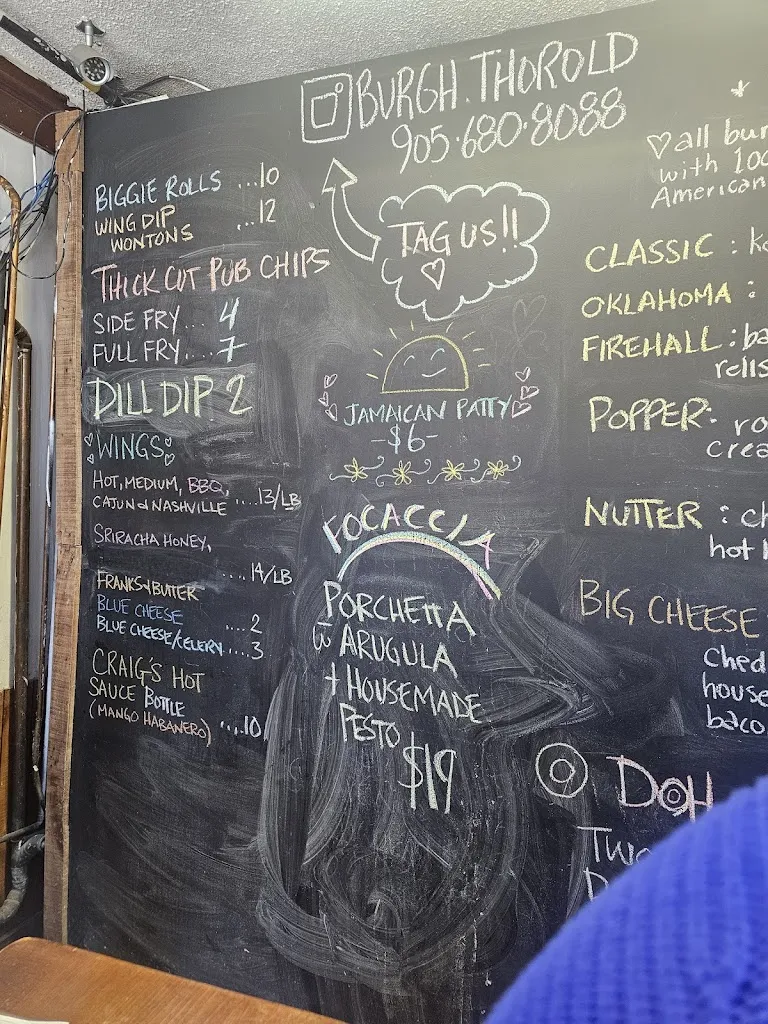 BURGH.THOROLD
905·680·8088
TAG US!!
BIGGIE ROLLS ...10
WING DIP
WONTONS ...12
THICK CUT PUB CHIPS
SIDE FRY... 4
FULL FRY... 7
DILL DIP 2
WINGS
HOT, MEDIUM, BBQ,
CAJUN & NASHVILLE ....13/LB
SRIRACHA HONEY,
....14/LB
FRANKS & BUTTER
BLUE CHEESE ....2
BLUE CHEESE/CELERY ....3
CRAIG'S HOT
SAUCE BOTTLE
(MANGO HABANERO) ....10
JAMAICAN PATTY
-$6-
FOCACCIA
PORCHETTA
c̄ ARUGULA
+ HOUSEMADE
PESTO
$19
*
♡ all bur
with 100
American
CLASSIC :
OKLAHOMA :
FIREHALL : ba
relis
POPPER- ro
crea
NUTTER : ch
hot
BIG CHEESE
ched
house
baco
DOH
TWO